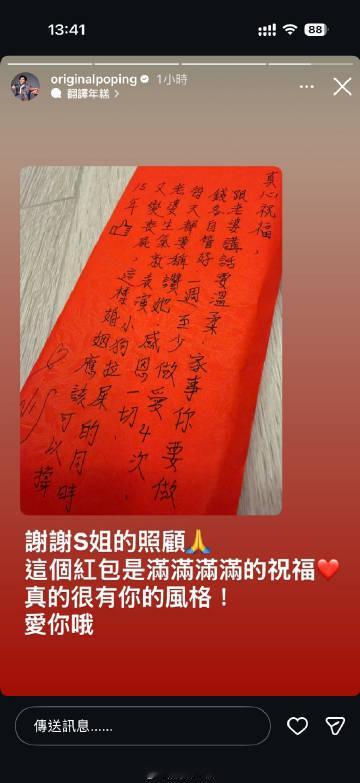 13:41
88
originalpoping 1小時
翻譯年糕
真心祝福,
跟老婆講話要溫柔,家事你要做
錢各自管好,一週至少做愛4次
每天都要稱讚她,感恩一切.
老婆生氣就表演小狗拉屎的同時
又變丧屍,這樣婚姻應該可以撐
15年
謝謝S姐的照顧🙏
這個紅包是滿滿滿滿的祝福❤️
真的很有你的風格!
愛你哦
傳送訊息......